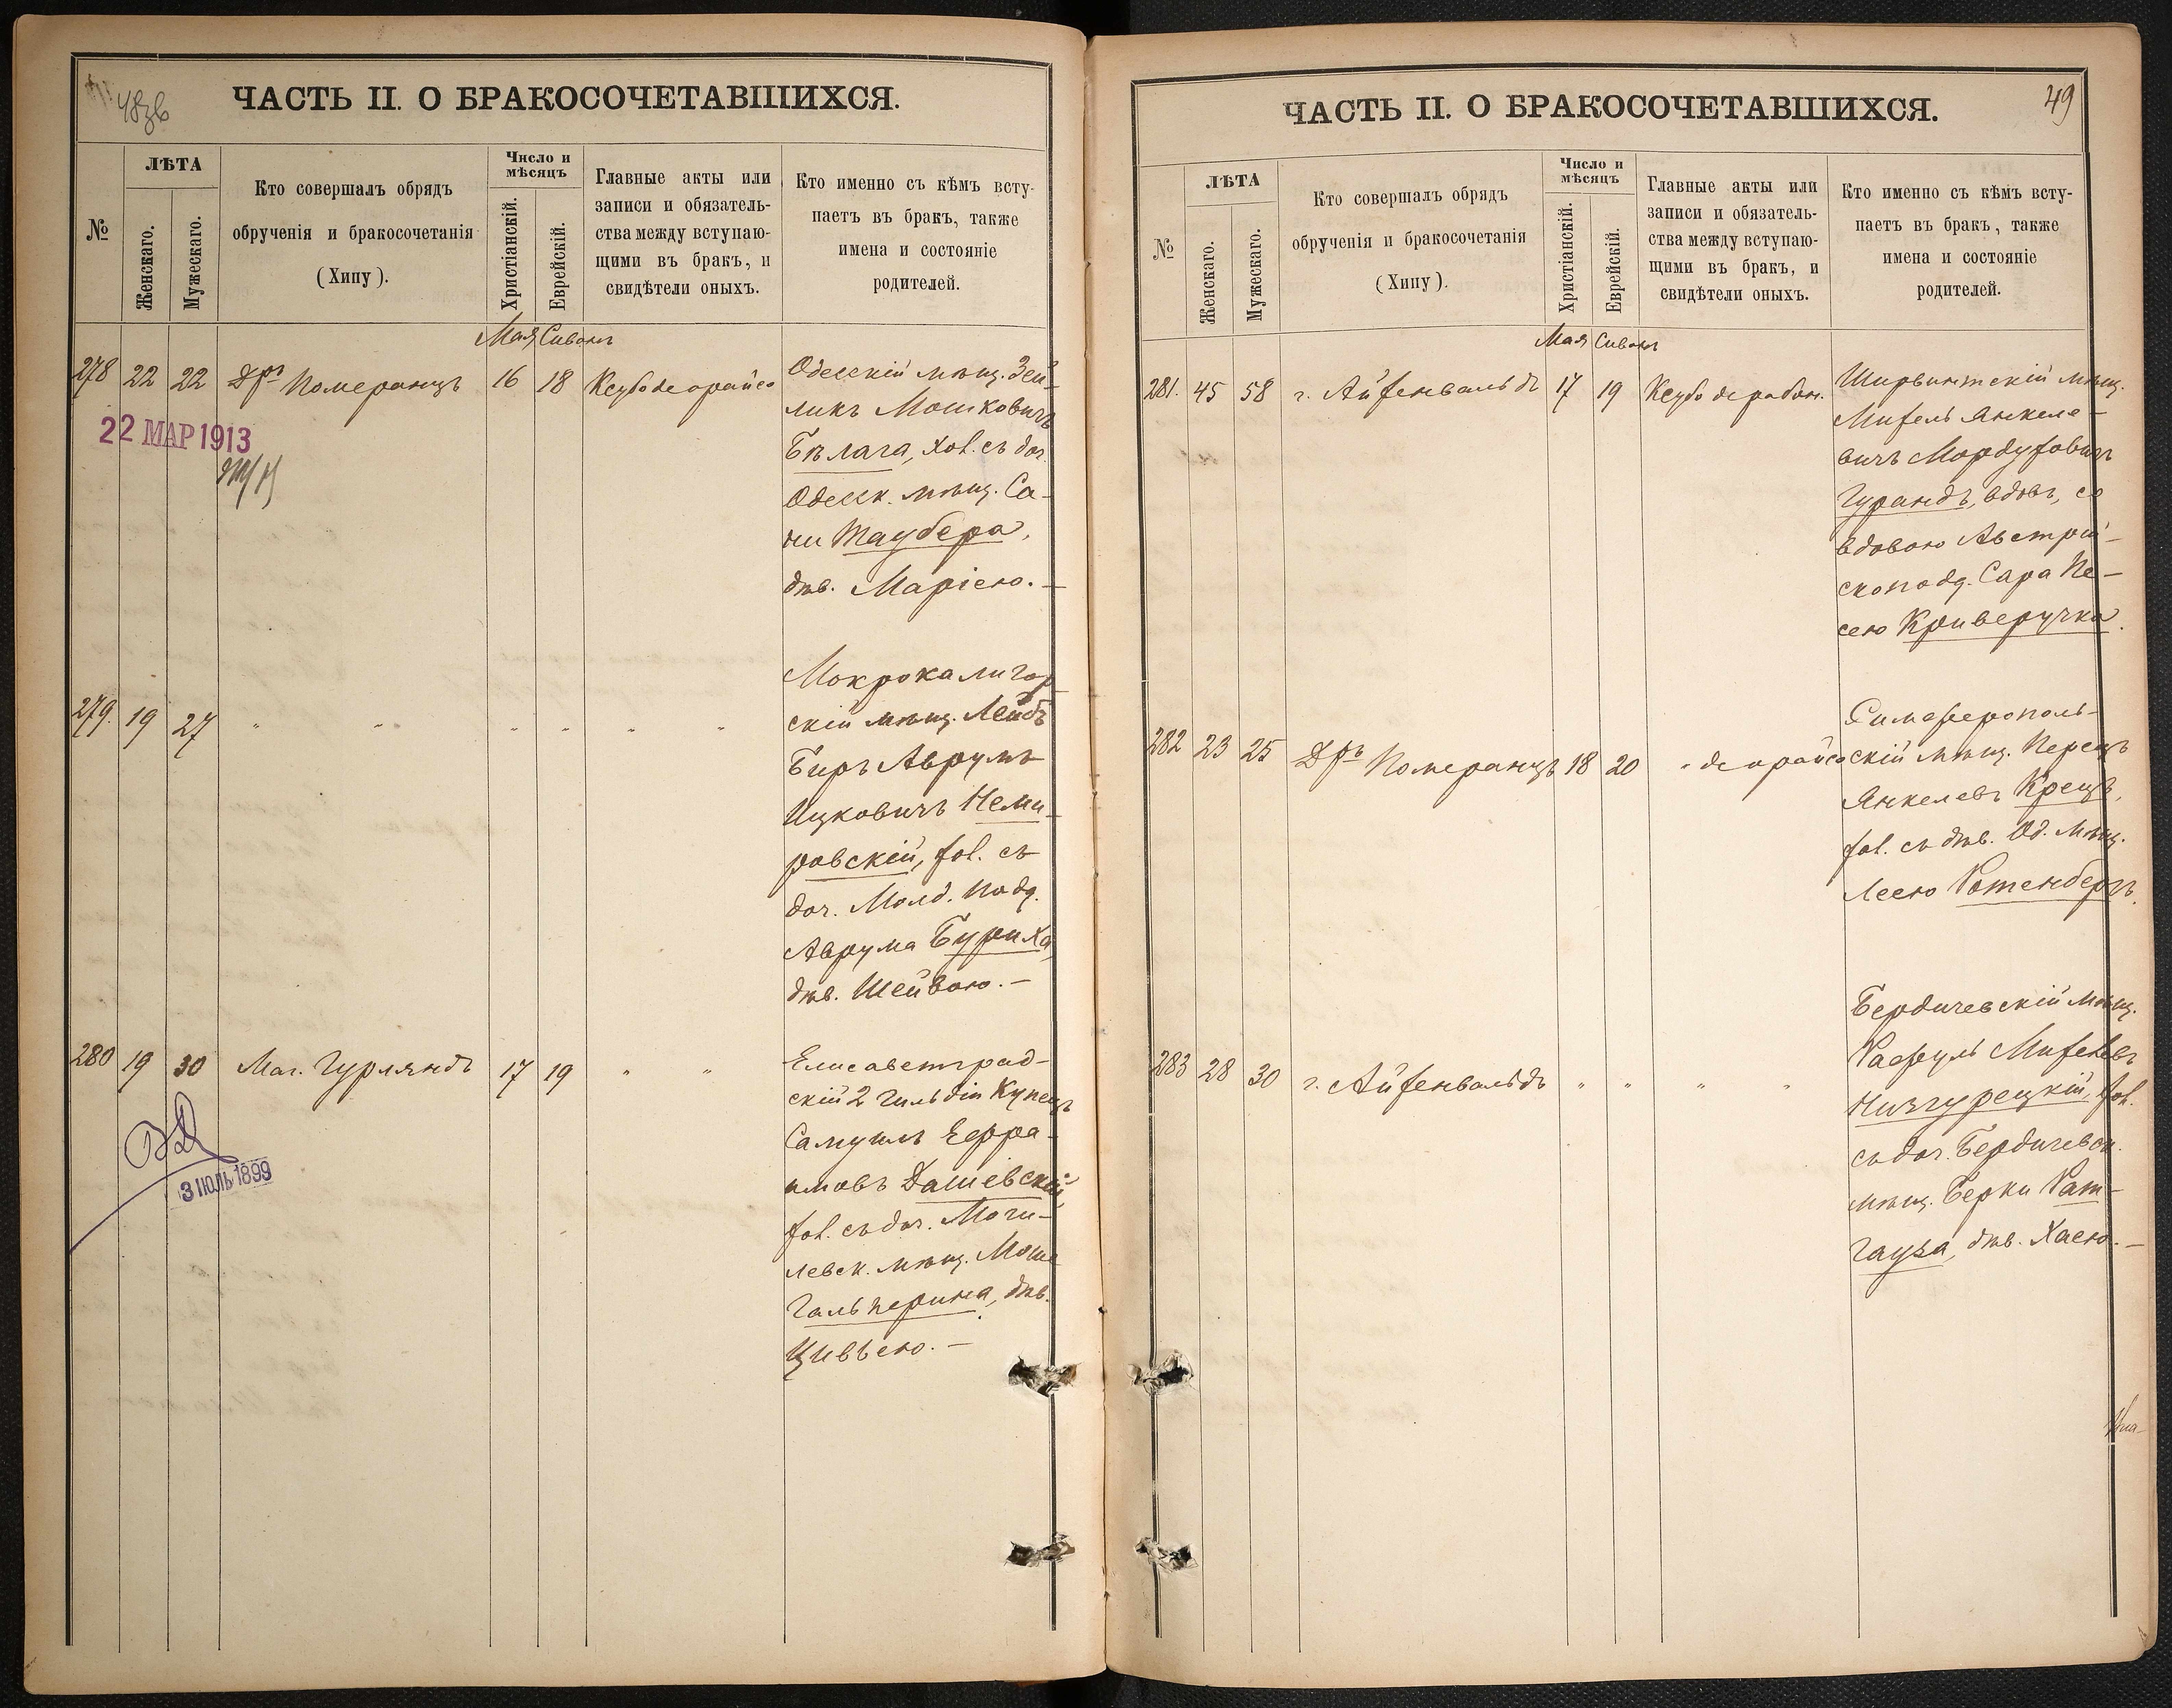 ЧАСТЬ II. О БРАКОСОЧЕТАВШИХСЯ.
№
ЛѢТА
Женскаго.
Мужескаго.
Кто совершалъ обрядъ
обрученія и бракосочетанія
(Хипу).
Число и
мѣсяцъ
Христіанскій.
Еврейскій.
Главные акты или
записи и обязатель-
ства между вступаю-
щими въ бракъ, и
свидѣтели оныхъ.
Кто именно съ кѣмъ всту-
паетъ въ бракъ, также
имена и состояніе
родителей.
Мая Сиванъ
278 22 22 Дръ Померанцъ 16 18 Ксубо деорайсо
Одесскій мѣщ. Зей-
ликъ Мошковичъ
Бѣлага, хол. съ доч.
Одесск. мѣщ. Са-
ни Таубера,
дѣв. Маріею. —
22 МАР 1913
279. 19 27 " " " " " "
Мокрокалигор-
скій мѣщ. Лейбъ
Беръ Аврумъ
Ицковичъ Неми-
ровскій, хол. съ
доч. Молд. подд.
Аврума Буриха,
дѣв. Шейвою. —
280 19 30 Маг. Гурляндъ 17 19 " "
Елисаветград-
скій 2 гильдіи Купецъ
Самуилъ Ефра-
имовъ Дашевскій,
хол. съ доч. Моги-
левск. мѣщ. Моше
Гальперина, дѣв.
Цивьею. —
3 ІЮЛЬ 1899
ЧАСТЬ II. О БРАКОСОЧЕТАВШИХСЯ.
49
№
ЛѢТА
Женскаго.
Мужескаго.
Кто совершалъ обрядъ
обрученія и бракосочетанія
(Хипу).
Число и
мѣсяцъ
Христіанскій.
Еврейскій.
Главные акты или
записи и обязатель-
ства между вступаю-
щими въ бракъ, и
свидѣтели оныхъ.
Кто именно съ кѣмъ всту-
паетъ въ бракъ, также
имена и состояніе
родителей.
Мая Сиванъ
281. 45 58 г. Айхенвальдъ 17 19 Ксубо дерабон.
Ширвинтскій мѣщ.
Михель Янкеле-
вичъ Мордуховичъ
Гурандъ, вдов., со
вдовою Австрій-
ско подд. Сара Пе-
сею Криверучка.
282 23 25 Дръ Померанцъ 18 20 " деорайсо
Симферополь-
скій мѣщ. Перецъ
Янкелевъ Крецъ,
хол. съ дѣв. Од. мѣщ.
Леею Ротенбергъ.
283 28 30 г. Айхенвальдъ " " " "
Бердичевскій мѣщ.
Рафулъ Михелевъ
Низгурецкій, хол.
съ доч. Бердичевск.
мѣщ. Берки Рат-
гауза, дѣв. Хаею. —